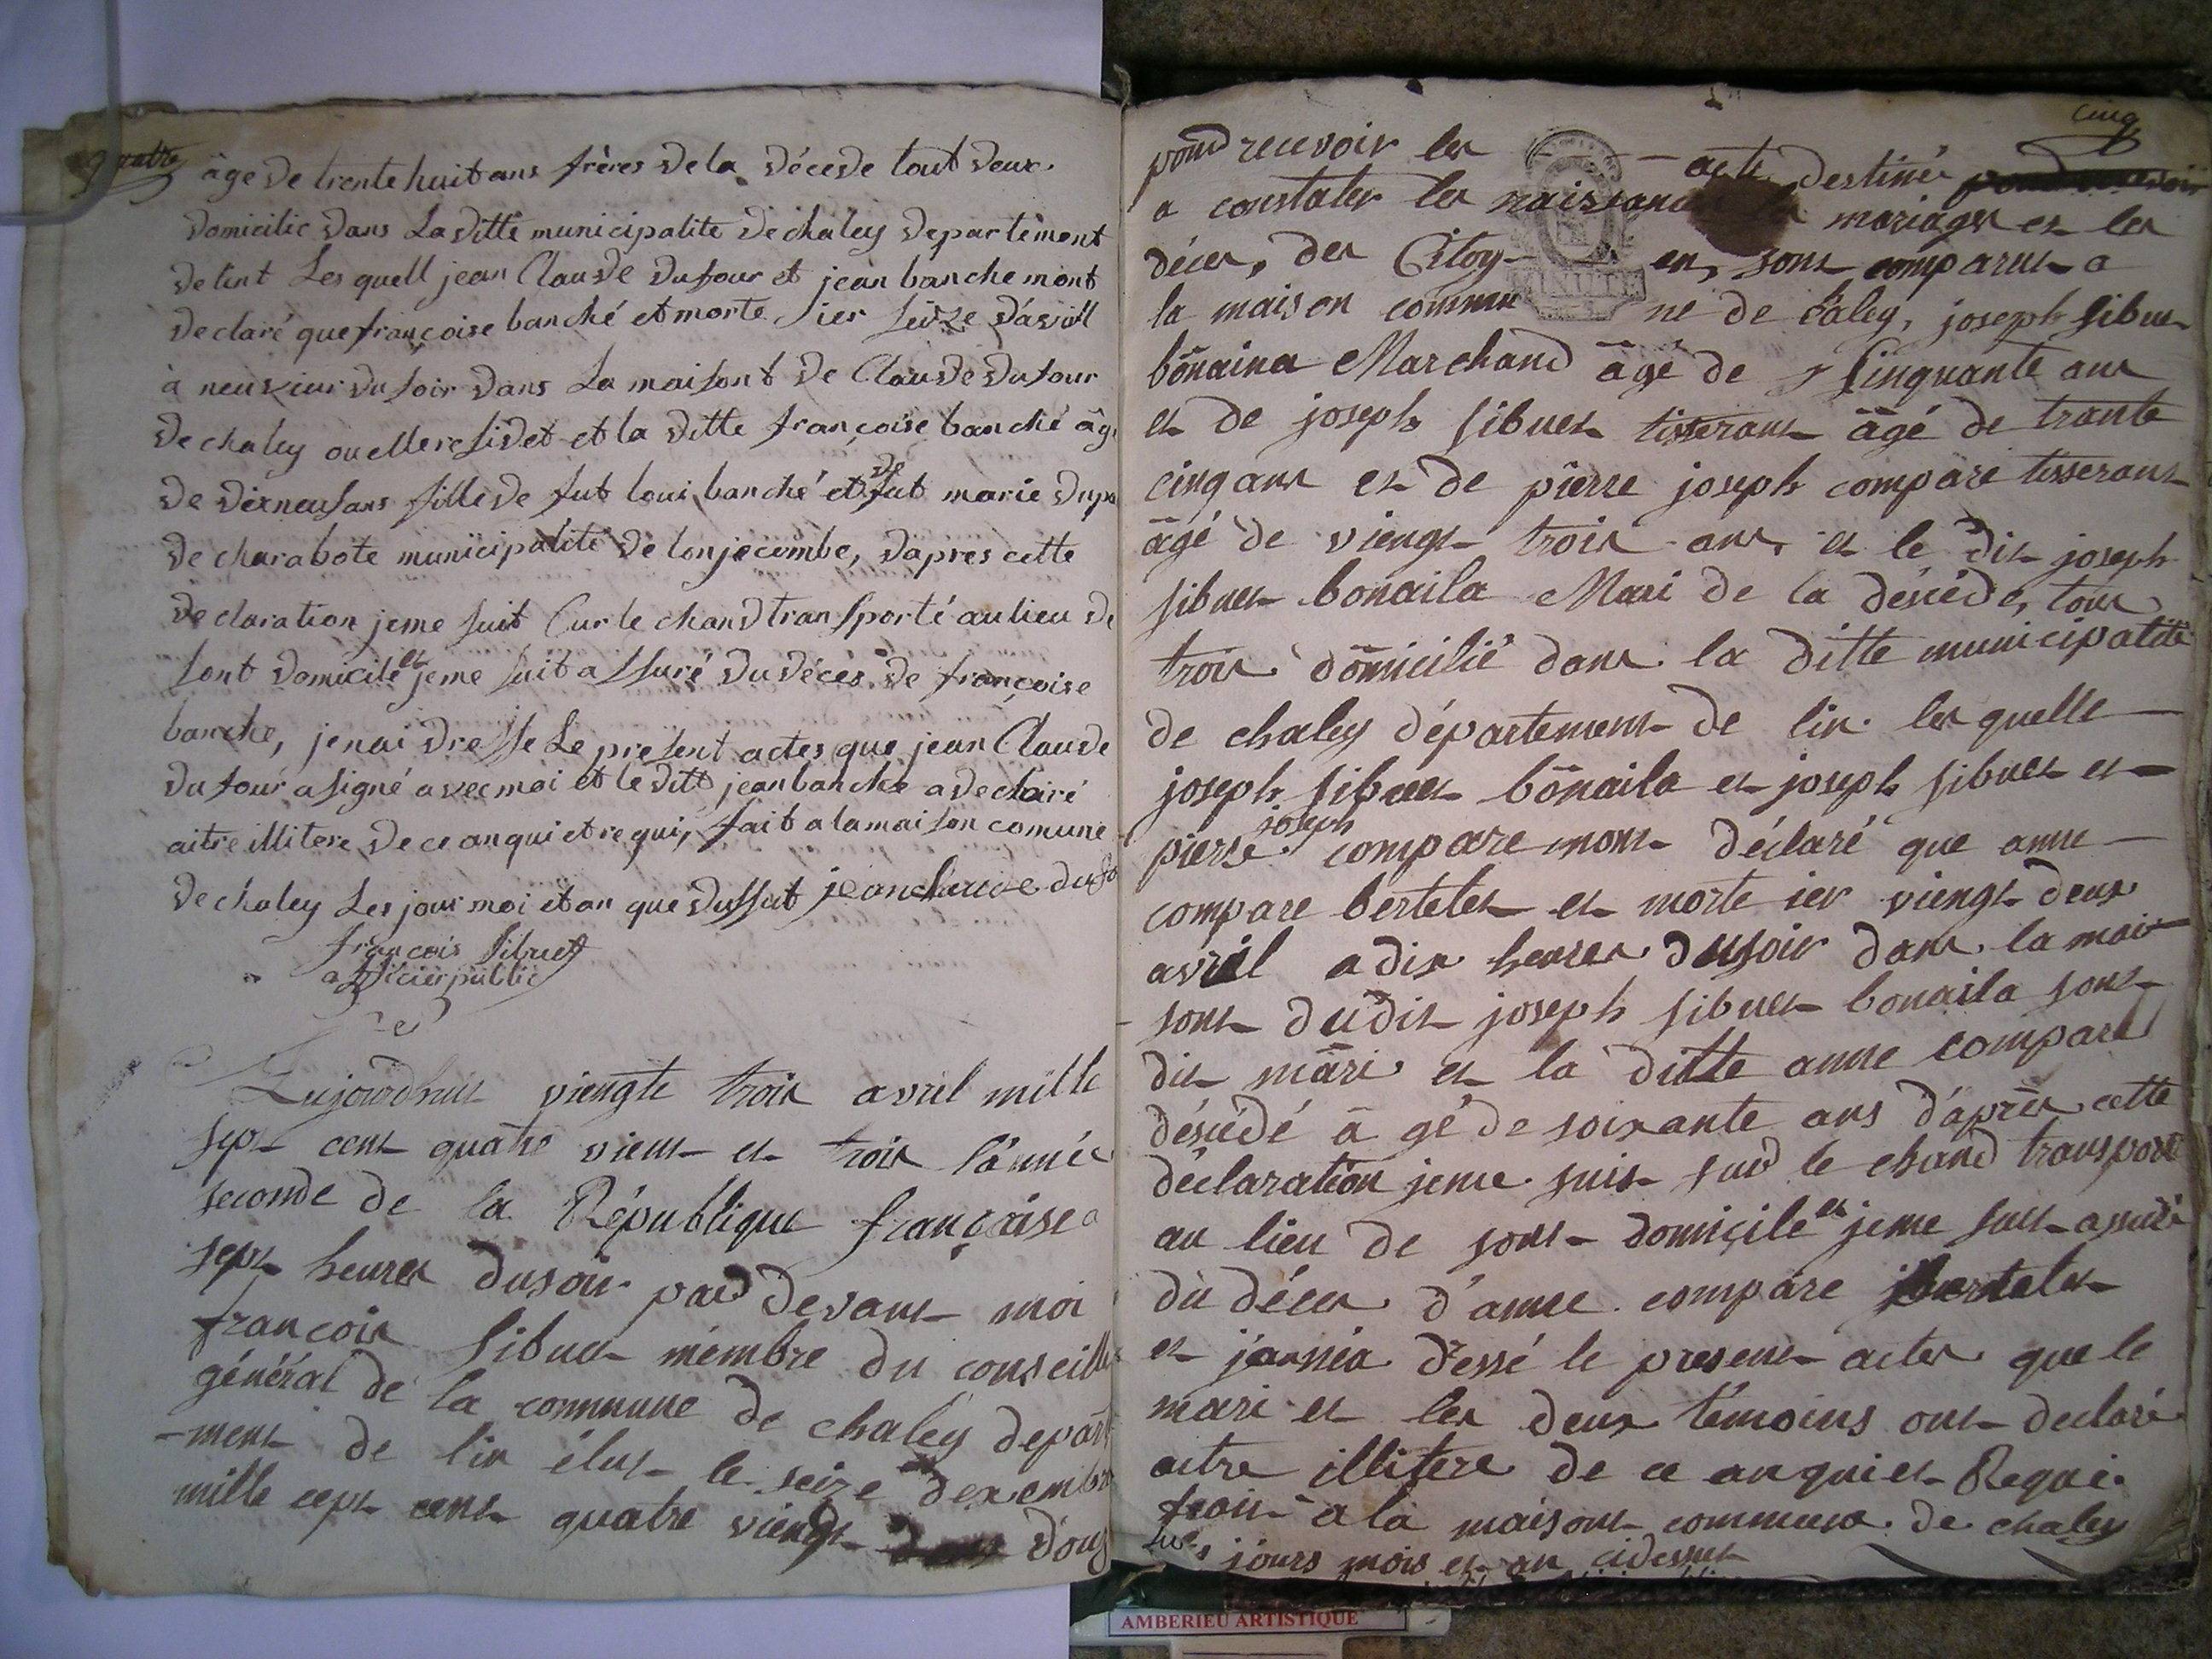 quatre
âge de trente huit ans frères de la décede tout deux
domicilie dans La ditte municipalite de chaley departement
de lint Les quell jean Claude dufour et jean banche mont
declaré que françoise banché et morte ier seize d'avril
à neuvieur du soir dans La maisont de Claude dufour
de chaley ou ellere sidet et la ditte françoise banché âg
de dixneufans fille de fut loui banché et de fut marie dup
de charabote municipalité de lonjecombe, d'apres cette
declaration jeme suit Curle chand transporté au lieu de
sont domicile et jeme suit assuré du déces de françoise
banche, jenai dresse Le present actes que jean Claude
dufour a signé avec moi et le ditt jean banche a declaré
aitre illitere de ce anquiet requi, fait a la maison comune
de chaley Les jour moi et an que dussut jean claude duf
françois Sibuet
officier public
Aujourdhuit viengte trois avril mille
sept cent quatre vient et trois l'année
seconde de la République française a
sept heures dusoir par devant moi
françois sibuet mémbre du conseille
général de la commune de chaley depart
-ment de lin élut le seize dexembre
mille cept cent quatre viengt douz
cinq
pour recevoir les acte destiné
a constater les naissance les mariages et les
décès, des Citoy- en, sont comparut a
la maison commu ne de caley, joseph sibuet
bonaina Marchand âgé de sinquante ans
et de joseph sibuet tisserant âgé de trante
cinq ans et de pierre joseph compare tisserant
âgé de viengt trois ans, et le dit joseph
sibuet bonaila Mari de la désédé, tous
trois domicilié dans la ditte municipalité
de chaley département de lin les quelle
joseph sibuet bonaila et joseph sibuet et
pierre joseph compare mont déclaré que anne
compare bertelet et morte ier viengt deux
avril a dix heures dusoir dans la mai
sont dudit joseph sibuet bonaila sont
dit mari et la ditte anne compare
désédé â gé de soixante ans d'après cette
déclaration jeme suit sur le chand transporté
au lieu de sont domicile et jeme suit assuré
du déces d'anne compare bertelet
et dressé le present actes que le
mari et les deux témoins ont declaré
aitre illitere de ce anquiet Requi
fait a la maisont commune de chaley
les jours mois et an cidessut
AMBERIEU ARTISTIQUE